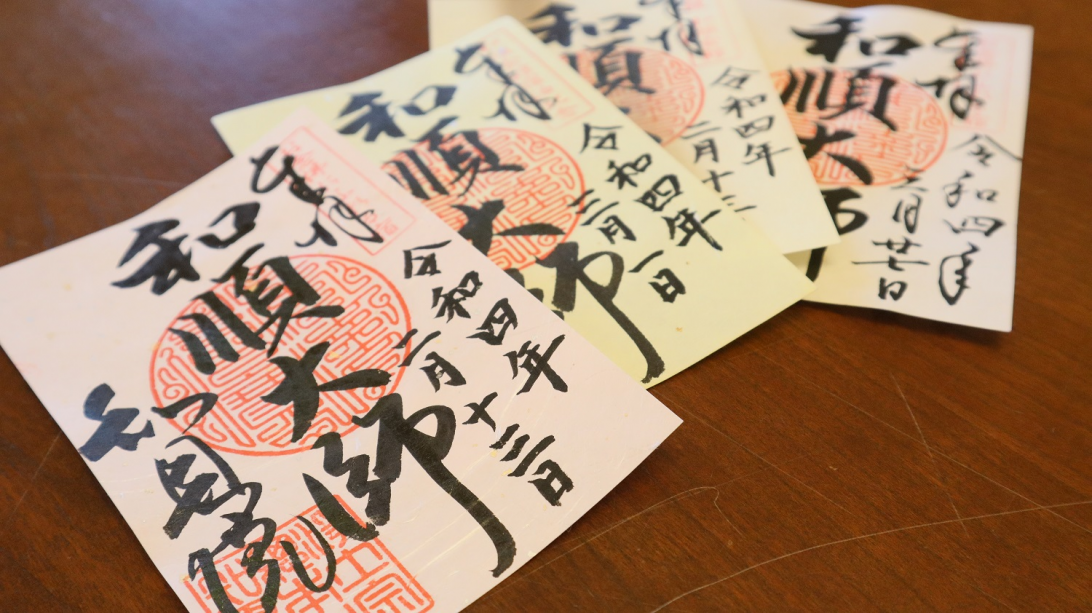 奉拝
令和四年
二月十三日
和順大師
知恩院
奉拝
令和四年
三月一日
和順大師
奉拝
令和四年
二月十三
和順
奉拝
令和四年
和順大師